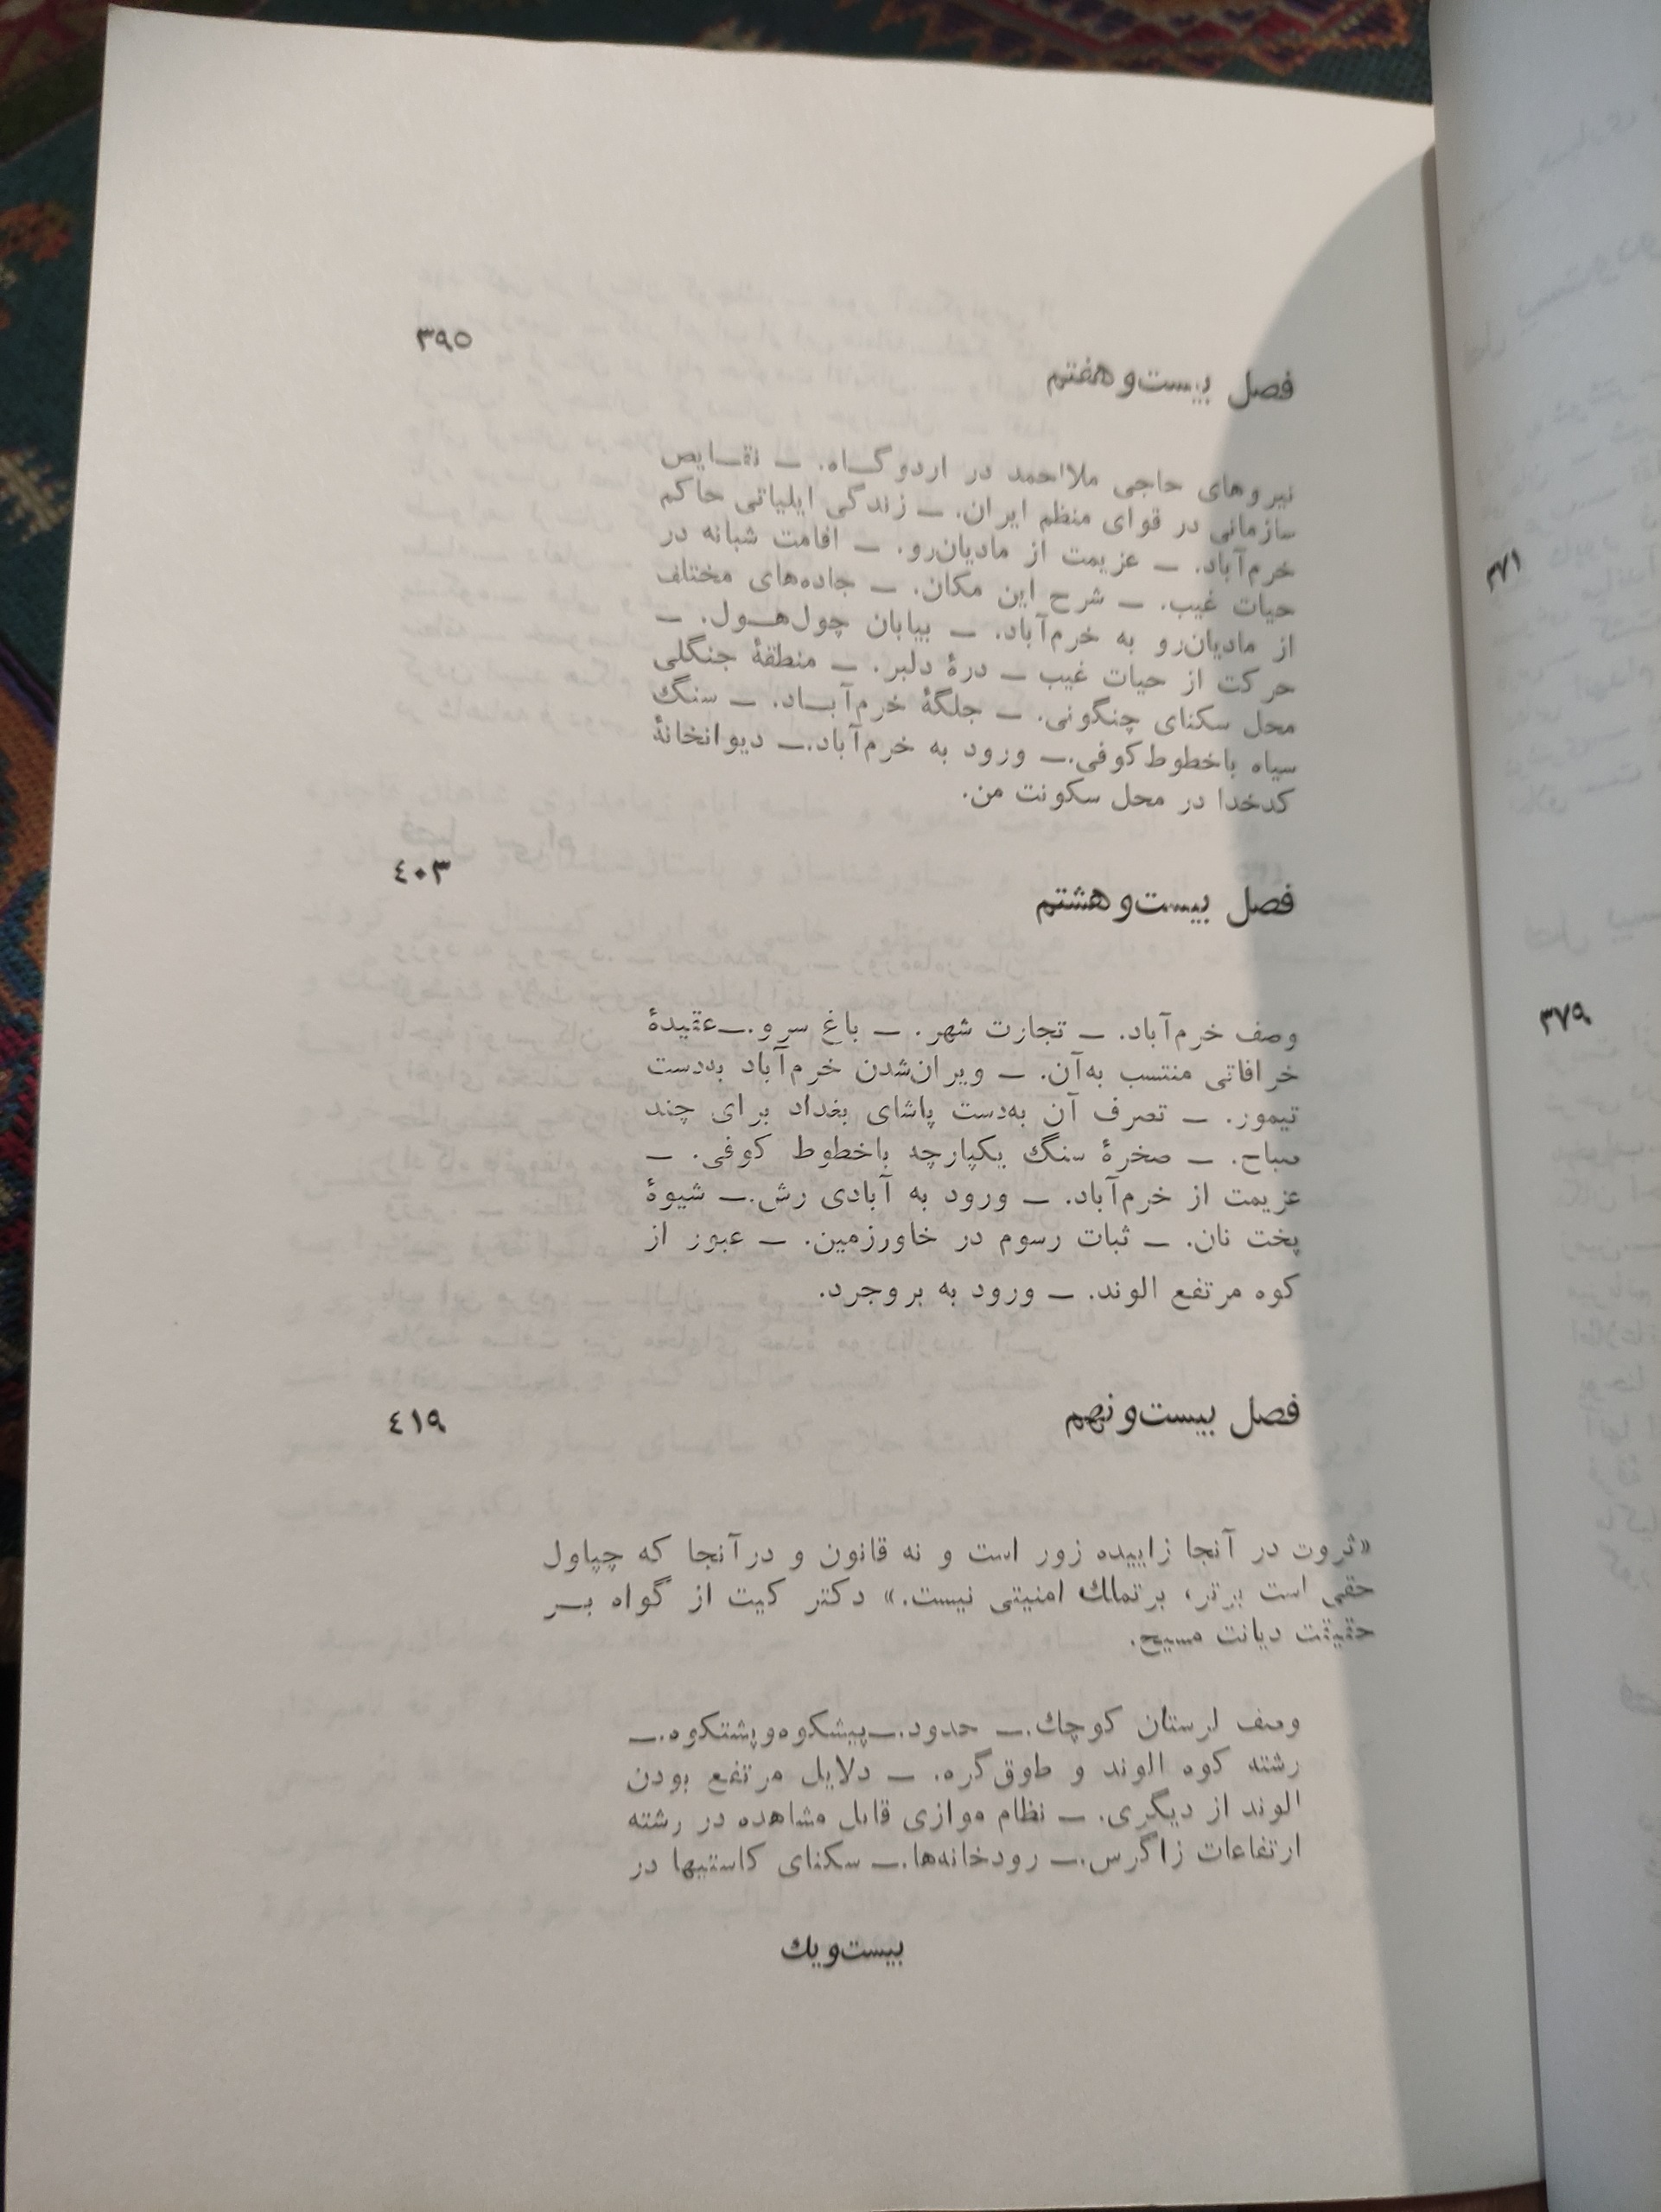 فصل بیست‌و‌هفتم ۳۹۵
نیروهای حاجی ملااحمد در اردوگاه. ــ نقایص
سازمانی در قوای منظم ایران. ــ زندگی ایلیاتی حاکم
خرم‌آباد. ــ عزیمت از مادیان‌رو. ــ اقامت شبانه در
حیات غیب. ــ شرح این مکان. ــ جاده‌های مختلف
از مادیان‌رو به خرم‌آباد. ــ بیابان چول‌هول. ــ
حرکت از حیات غیب ــ درهٔ دلبر. ــ منطقهٔ جنگلی
محل سکنای چنگونی. ــ جلگهٔ خرم‌آباد. ــ سنگ
سیاه باخطوط کوفی. ــ ورود به خرم‌آباد. ــ دیوانخانهٔ
کدخدا در محل سکونت من.
فصل بیست‌و‌هشتم ۴۰۳
وصف خرم‌آباد. ــ تجارت شهر. ــ باغ سرو. ــ عقیدهٔ
خرافاتی منتسب به‌آن. ــ ویران‌شدن خرم‌آباد به‌دست
تیمور. ــ تصرف آن به‌دست پاشای بغداد برای چند
صباح. ــ صخرهٔ سنگ یکپارچه باخطوط کوفی. ــ
عزیمت از خرم‌آباد. ــ ورود به آبادی رش. ــ شیوهٔ
پخت نان. ــ ثبات رسوم در خاورزمین. ــ عبور از
کوه مرتفع الوند. ــ ورود به بروجرد.
فصل بیست‌و‌نهم ۴۱۹
«ثروت در آنجا زاییده زور است و نه قانون و درآنجا که چپاول
حقی است برتر، برتملك امنیتی نیست.» دکتر کیت از گواه بر
حقیقت دیانت مسیح.
وصف لرستان کوچك. ــ حدود. ــ پیشکوه‌و‌پشتکوه. ــ
رشته کوه الوند و طوق‌گره. ــ دلایل مرتفع بودن
الوند از دیگری. ــ نظام موازی قابل مشاهده در رشته
ارتفاعات زاگرس. ــ رودخانه‌ها. ــ سکنای کاستیها در
بیست‌و‌یك
۳۷۱
۳۷۹